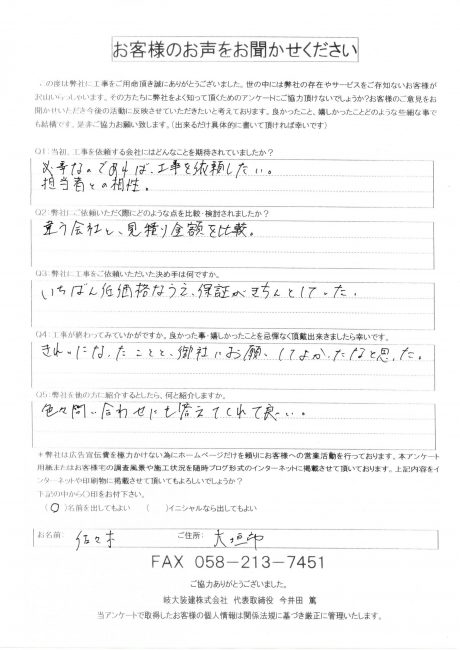 お客様のお声をお聞かせください
この度は弊社に工事をご用命頂き誠にありがとうございました。世の中には弊社の存在やサービスをご存知ないお客様が
沢山いらっしゃいます。その方たちに弊社をよく知って頂くためのアンケートにご協力頂けないでしょうか？お客様のご意見をお
聞かせいただき今後の活動に反映させていただきたいと考えております。良かったこと、嬉しかったことどのような些細な事で
も結構です。是非ご協力お願い致します。（出来るだけ具体的に書いて頂ければ幸いです）
Q1：当初、工事を依頼する会社にはどんなことを期待されていましたか？
必要なのであれば、工事を依頼したい。
担当者との相性。
Q2：弊社にご依頼いただく際にどのような点を比較・検討されましたか？
違う会社と、見積り金額を比較。
Q3：弊社に工事をご依頼いただいた決め手は何ですか。
いちばん低価格なうえ、保証がきちんとしていた。
Q4：工事が終わってみていかがですか。良かった事・嬉しかったことを忌憚なく頂戴出来きましたら幸いです。
きれいになったことと、御社にお願いしてよかったなと思った。
Q5：弊社を他の方に紹介するとしたら、何と紹介しますか。
色々問い合わせにも答えてくれて良い。
＊弊社は広告宣伝費を極力かけない為にホームページだけを頼りにお客様への営業活動を行っております。本アンケート
用紙またはお客様宅の調査風景や施工状況を随時ブログ形式のインターネットに掲載させて頂いております。上記内容をイ
ンターネットや印刷物に掲載させて頂いてもよろしいでしょうか？
下記の中から○印をお付下さい。
（○）名前を出してもよい （ ）イニシャルなら出してもよい
お名前： 佐々木 ご住所： 大垣市
FAX 058-213-7451
ご協力ありがとうございました。
岐大装建株式会社 代表取締役 今井田 篤
当アンケートで取得したお客様の個人情報は関係法規に基づき厳正に管理いたします。